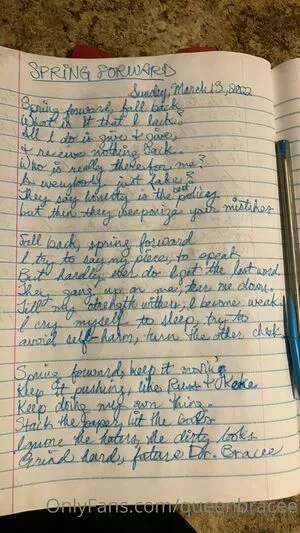 SPRING FORWARD
Sunday, March 13, 2022
Spring forward, fall back
What is it that I lack?
All I do is give & give,
& receive nothing back.
Who is really there for me?
Is everybody just fake?
They say honesty is the best policy
but then they weaponize your mistakes
Fall back, spring forward
I try to say my piece, to speak
But hardly ever do I get the last word
They gang up on me, tear me down,
Till my strength withers, I become weak
I cry myself to sleep, try to
avoid self-harm, turn the other cheek
Spring forward, keep it movin'
Keep it pushing, like &
Keep doing my own thing.
Stack the paper, hit the books
Ignore the haters, the dirty looks
Grind hard, future Dr. Bracee
OnlyFans.com/queenbracee